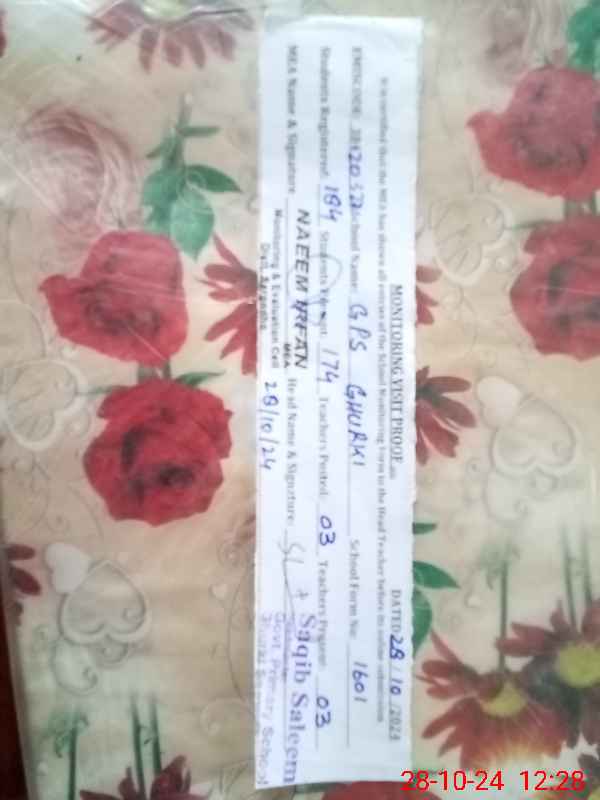 MONITORING VISIT PROOF
DATED 28/10/2024
It is certified that the MEA has shown all entries of the School Monitoring Form to the Head Teacher before its online submission
EMIS CODE: School Name: GPS GHURKI School Form No: 1601
Students Registered: 184 Students Present: 174 Teachers Posted: 03 Teachers Present: 03
MEA Name & Signature NAEEM IRFAN Head Name & Signature: Saqib Saleem
MEA
Monitoring & Evaluation Cell
28/10/24
Govt. Primary School
28-10-24 12:28